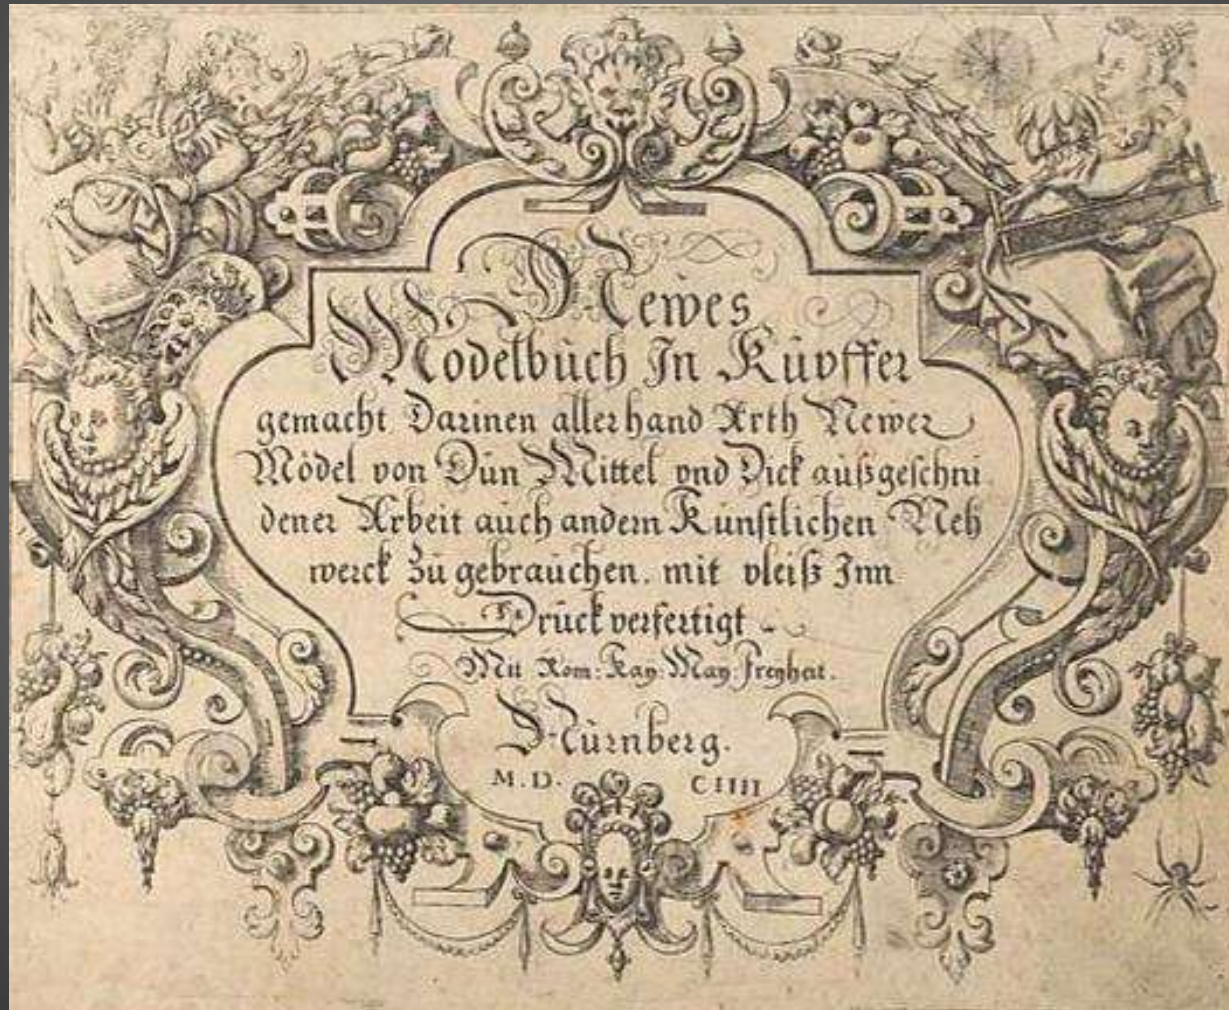 Newes
Modelbuch In Kupffer
gemacht Darinen allerhand Arth Newer
Mödel von Dün Mittel vnd Dick außgeschni
dener Arbeit auch andern Künstlichen Neh
werck Zu gebrauchen. mit vleiß Inn
Druck verfertigt
Mit Rom: Kay: May: Freyheit.
Nürnberg.
M.D. CIIII